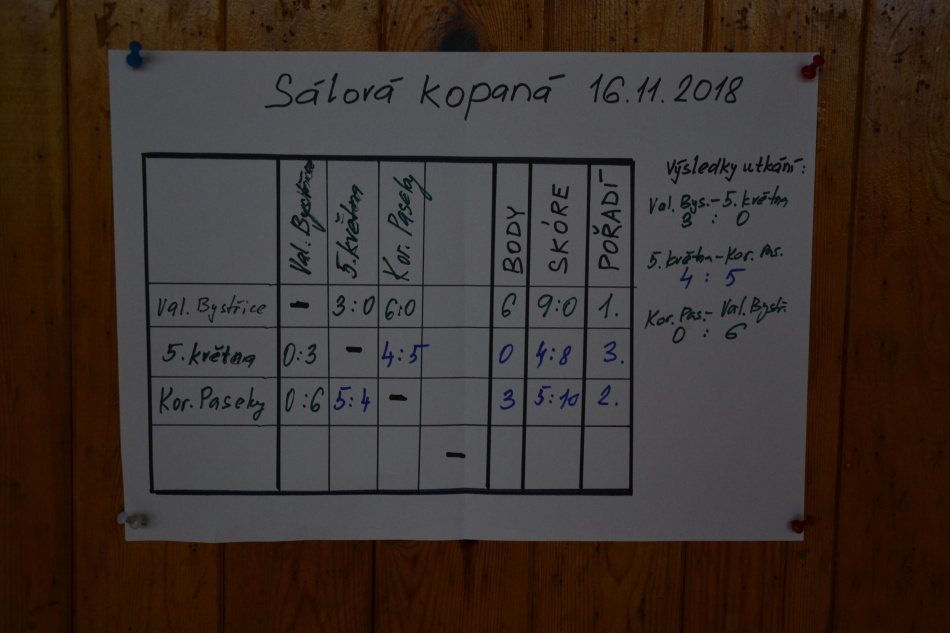 Sálová kopaná 16.11.2018
Val. Bystřice 5. květm Kor. Paseky BODY SKÓRE POŘADÍ
Val. Bystřice - 3:0 6:0 6 9:0 1.
5. května 0:3 - 4:5 0 4:8 3.
Kor. Paseky 0:6 5:4 - 3 5:10 2.
-
Výsledky utkání:
Val. Bys. - 5. května
3 : 0
5. května - Kor. Pas.
4 : 5
Kor. Pas. - Val. Bystř.
0 : 6